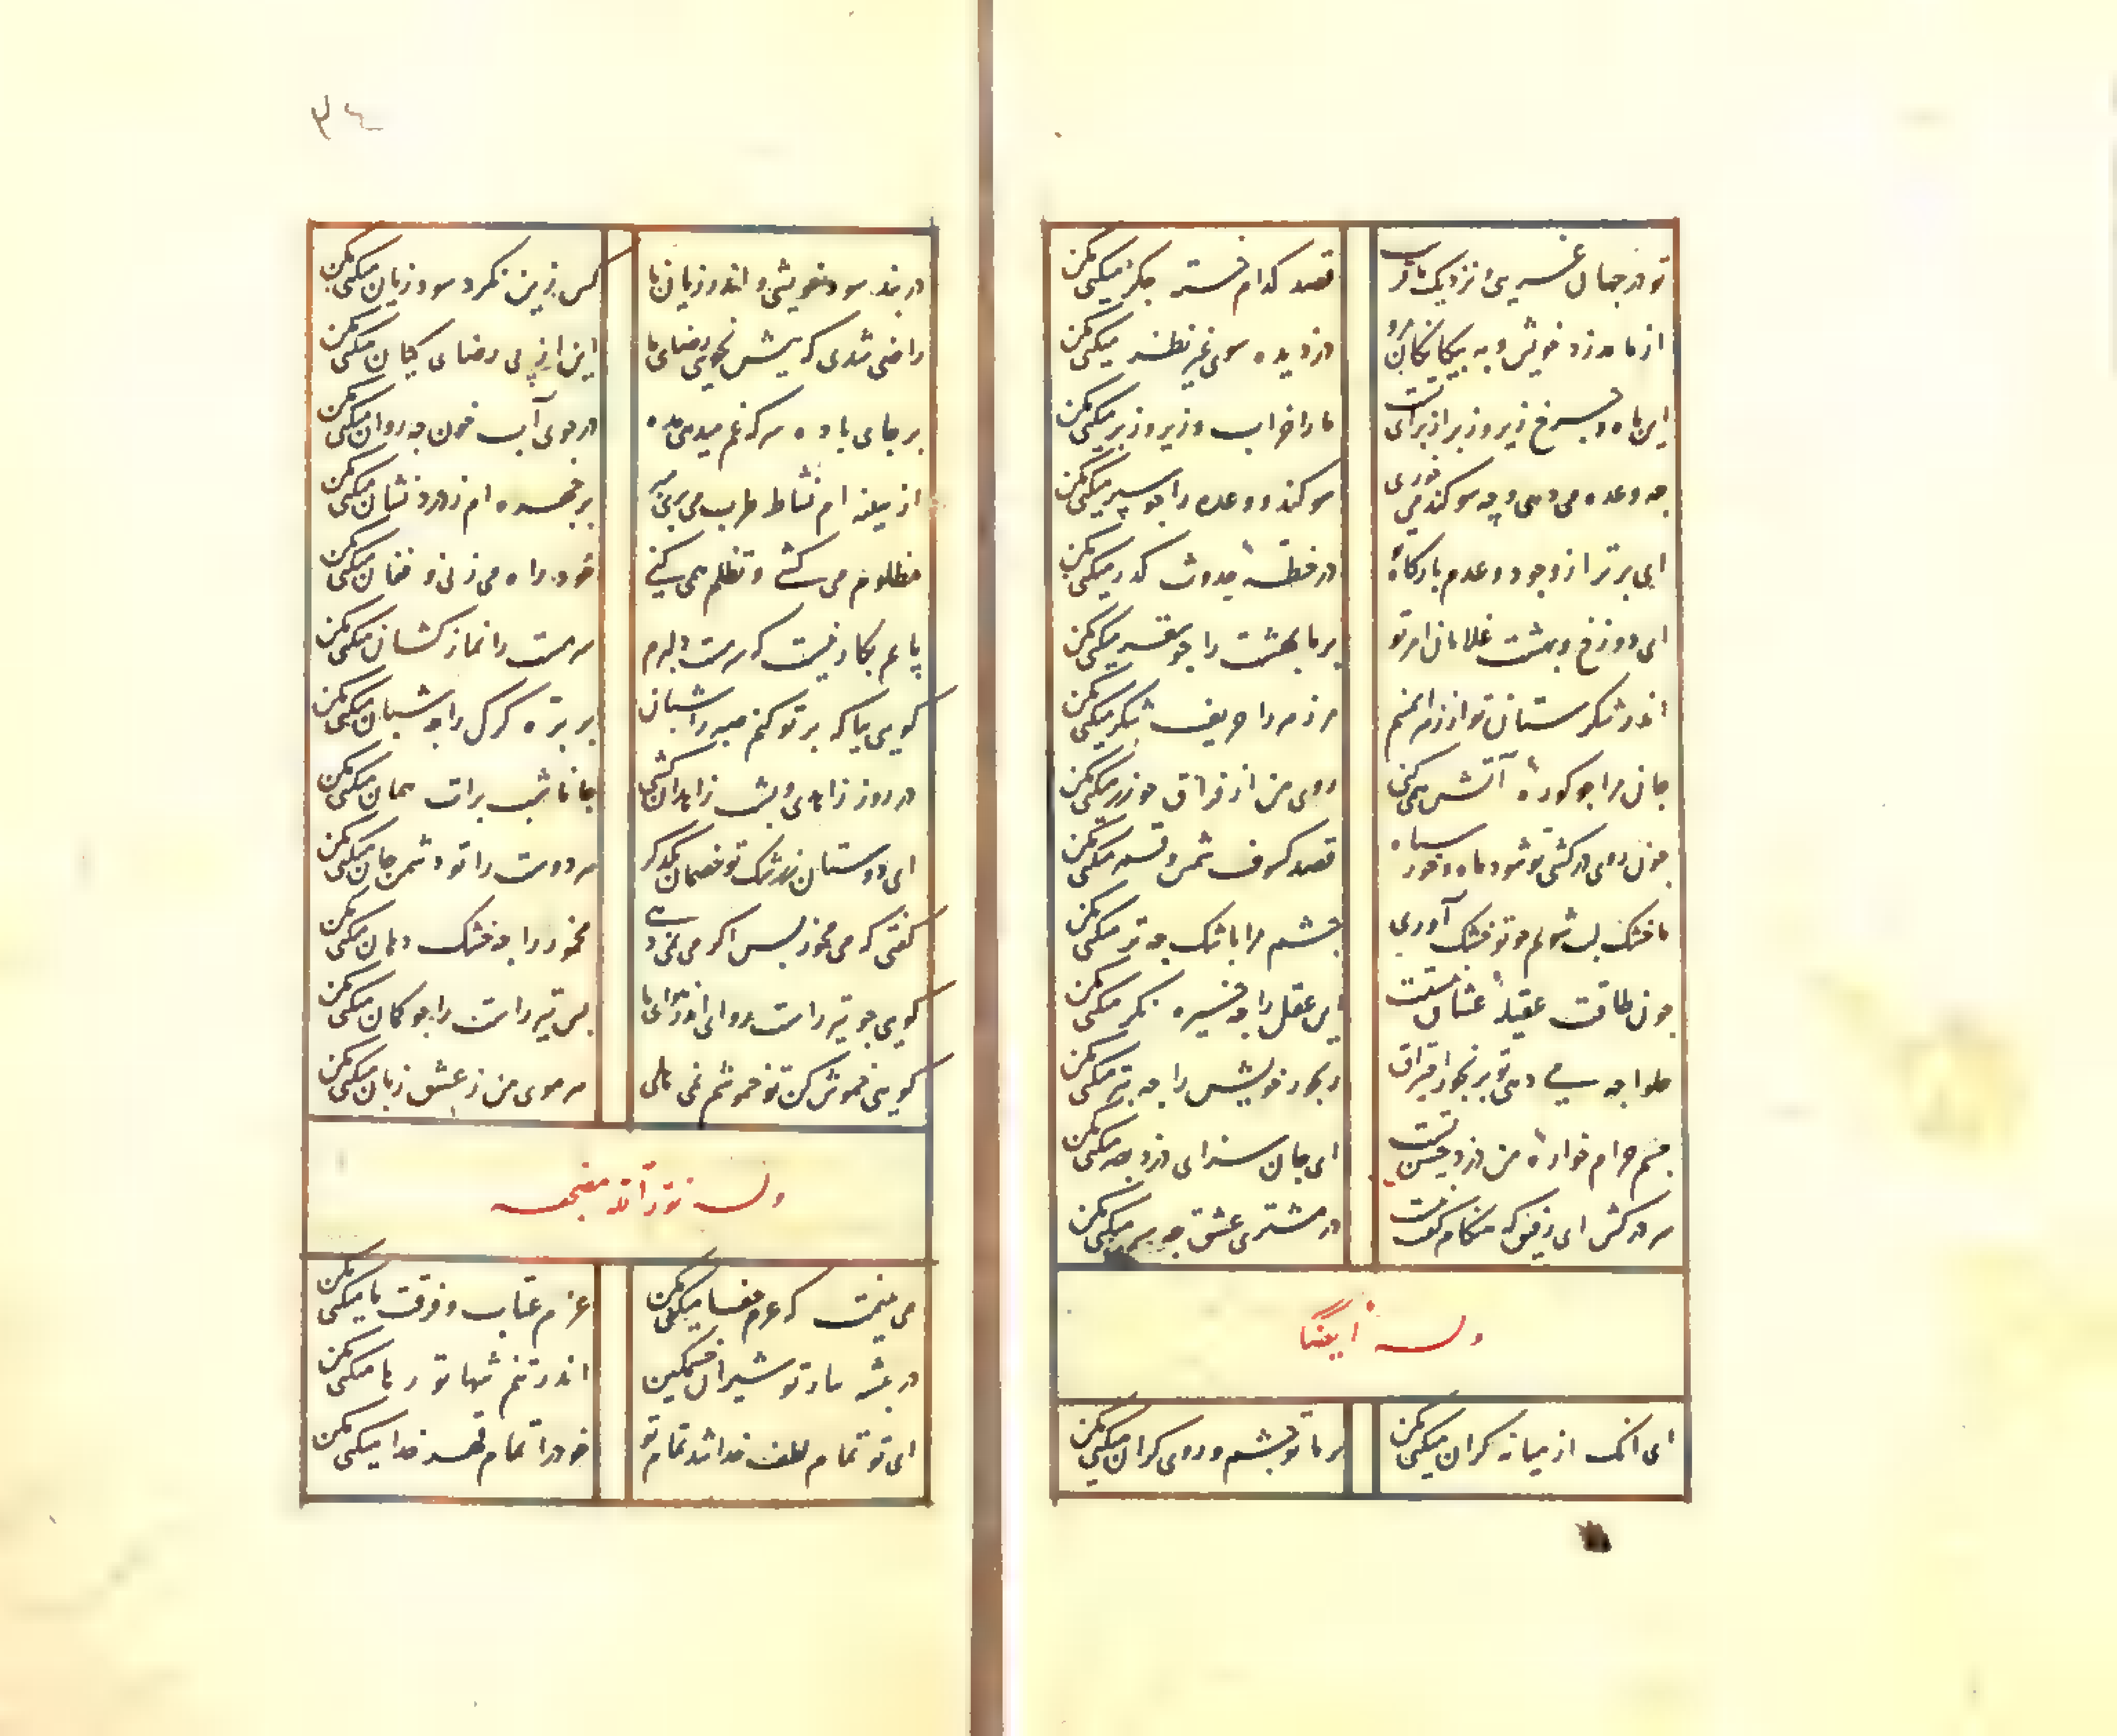 تو در جهان غریبی نزدیک تر غریب قصد کدام خسته جگر میکنی مکن
از ما مدزد خویش و به بیکانکان مرو دزدیده سوی غیر نظر میکنی مکن
ای ماه و چرخ زیر و زبر از برای تست ما را خراب و زیر و زبر میکنی مکن
چه وعده می دهی و چه سوکند می خوری سوکند و وعده را جو سپر میکنی مکن
ای برتر از وجود و عدم بارکاه در خطهٔ حدوث کدر میکنی مکن
ای دوزخ و بهشت غلامان امر تو بر ما بهشت را جو سقر میکنی مکن
اندر شکرستان تو از زهر ایمنم مر زهر را حریف شکر میکنی مکن
جان مرا جو کورهٔ آتش همی کنی روی من از فراق جو زر میکنی مکن
جون روی درکشی تو شود ماه و خور سیاه قصد کسوف شمس و قمر میکنی مکن
ما خشک لب شویم جو تو خشک آوری جشم مرا باشک جه تر میکنی مکن
جون طاقت عقیلهٔ عشاق نیستت بس عقل را جه خیره نکر میکنی مکن
حلوا جه می دهی تو برنجور افتراق رنجور خویش را جه بتر میکنی مکن
جشم حرام خوارهٔ من دزد حسن تست ای جان سزای دزد بصر میکنی مکن
سر درکش ای رفیق که هنکام کفت نیست در مشتری عشق جه سر میکنی مکن
وله ایضا
ای انک از میانه کران میکنی مکن بر ما تو خشم و روی کران میکنی مکن
٣٤
در بند سود خویشی و اندر زیان ما کس زین نکرد سود زیان میکنی مکن
راضی شدی که بیش نجویی رضای ما این از پی رضای کیان میکنی مکن
بر جای باده سرکهٔ غم میدهی مده در جوی آب خون جه روان میکنی مکن
از سینه ام نشاط طرب می بری مبر بر جهره ام ز درد نشان میکنی مکن
مظلوم می کشی و تظلم همی کنی خود راه می زنی و فغان میکنی مکن
پایم بکار نیست که سرمست دلبرم سرمست را نماز کشان میکنی مکن
کویی بیا که بر تو کنم صبر را شبان بر بره کرک را جه شبان میکنی مکن
در روز زاهدی و بشب زاهدان کشی جانا شب برات همان میکنی مکن
ای دوستان ز رشک تو خصمان یکدکر مر دوست را تو دشمن جان میکنی مکن
کفتی که می مخور بس اکر می نمی دهی مخمور را جه خشک دهان میکنی مکن
کویی جو تیر راست روانی اندر هوای ما بس تیر راست را جو کمان میکنی مکن
کویی خموش کن تو خموشم نمی هلی هر موی من ز عشق زبان میکنی مکن
وله نور الله مضجعه
می بینمت که عزم جفا میکنی مکن عزم عتاب و فرقت ما میکنی مکن
در بیشه ما ز تو شیران خشمکین اندر تنم شها تو رها میکنی مکن
ای تو تمام لطف خدا شد تمام تو خود را تمام قهر خدا میکنی مکن